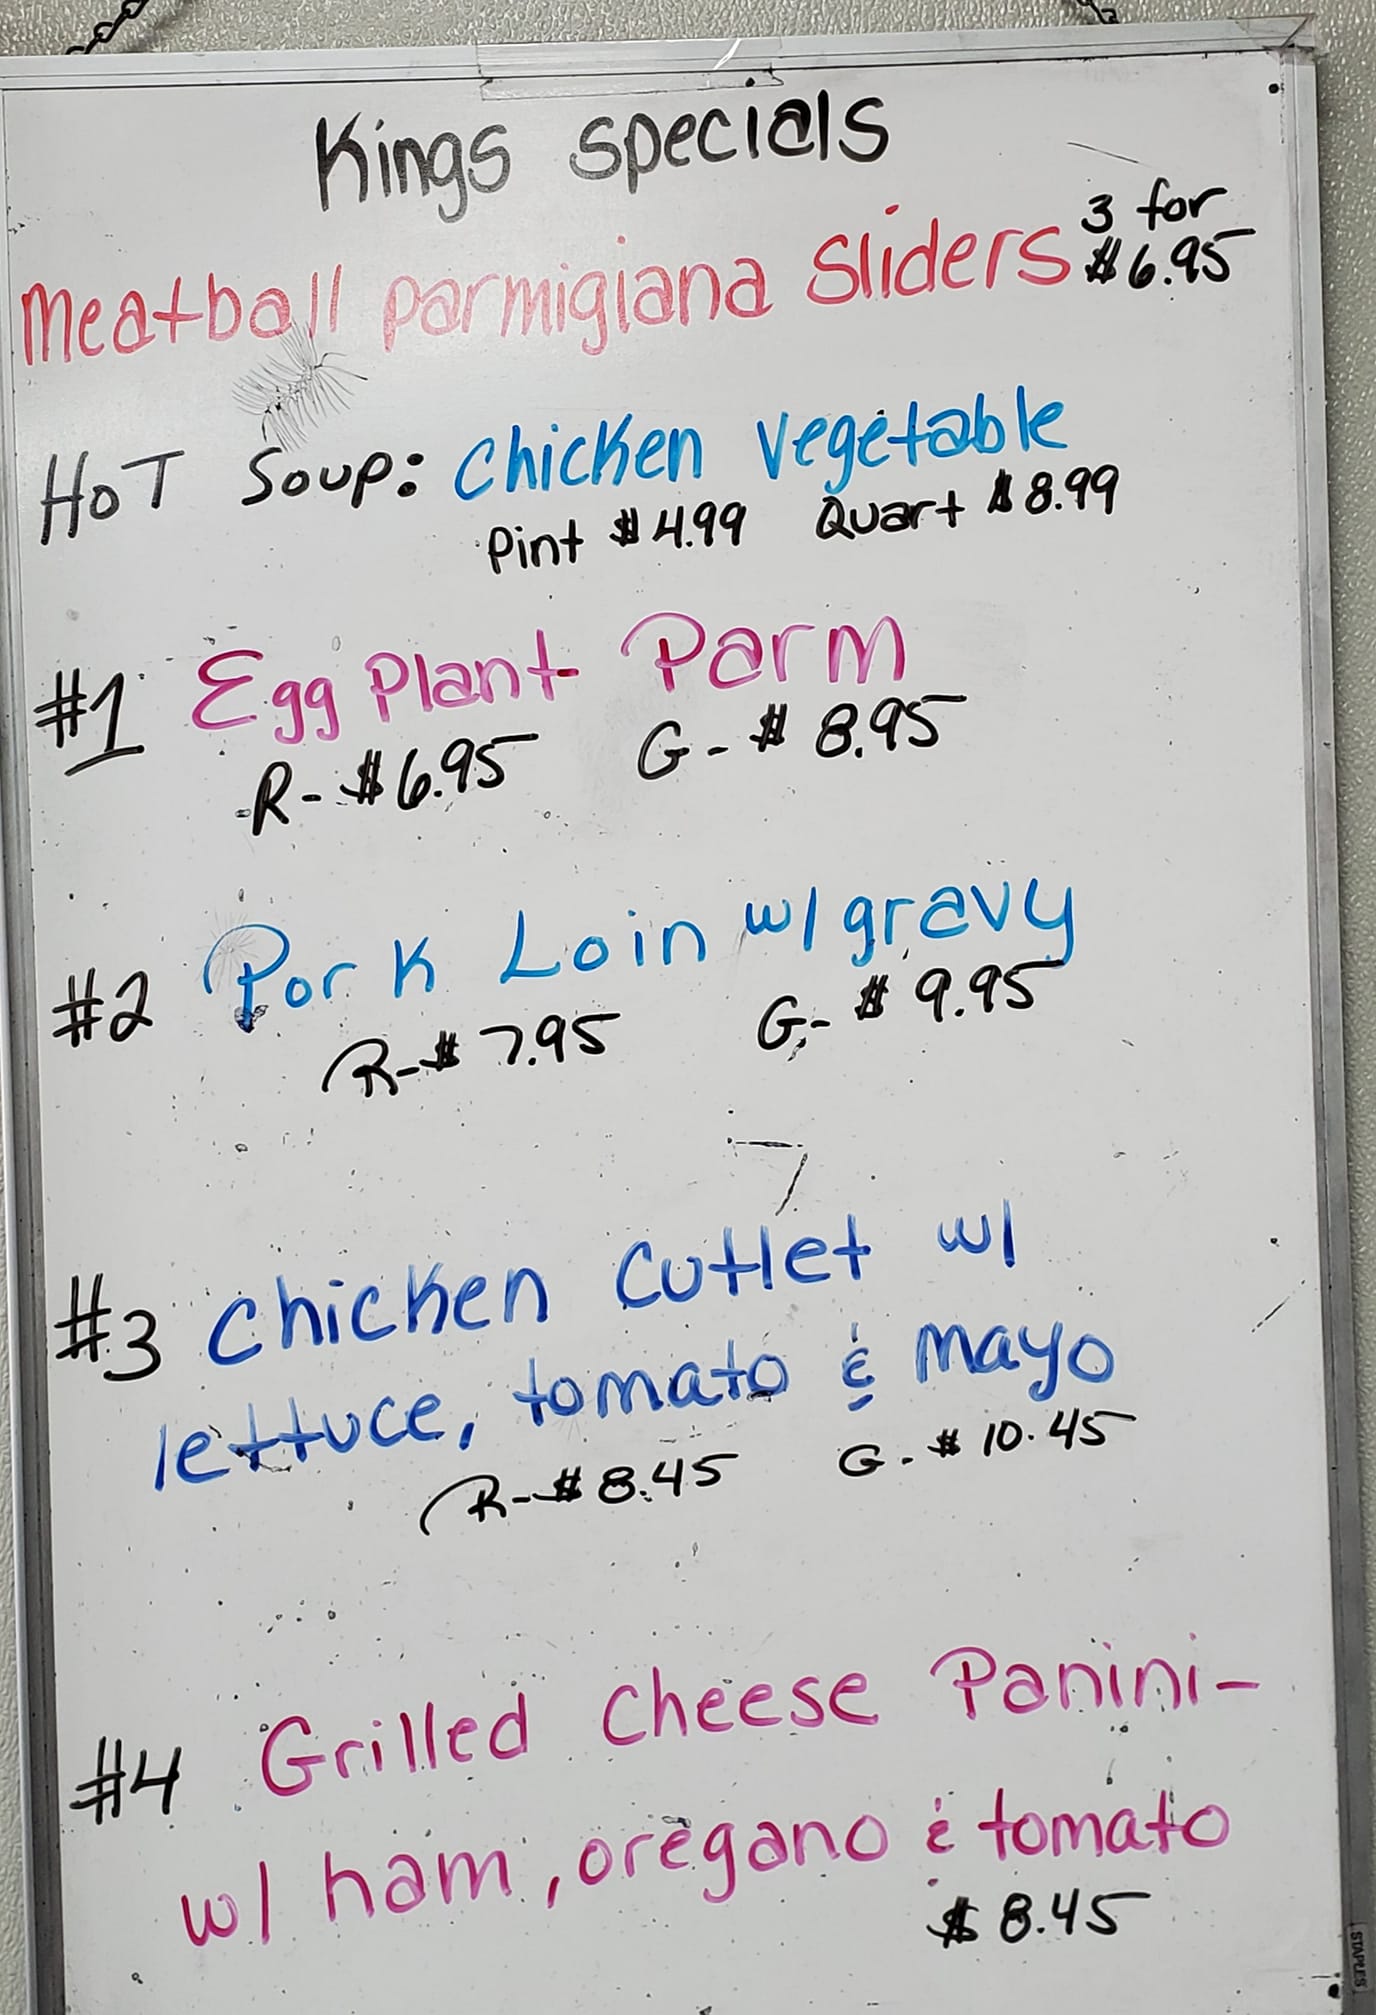 Kings Specials
Meatball Parmigiana Sliders 3 for $6.95
HOT Soup: Chicken Vegetable
Pint $4.99 Quart $8.99
#1 EggPlant Parm
R-$6.95 G-$8.95
#2 Pork Loin w/gravy
R-$7.95 G-$9.95
#3 Chicken Cutlet w/
lettuce, tomato & mayo
R-$8.45 G-$10.45
#4 Grilled Cheese Panini-
w/ ham, oregano & tomato
$8.45
STAPLES